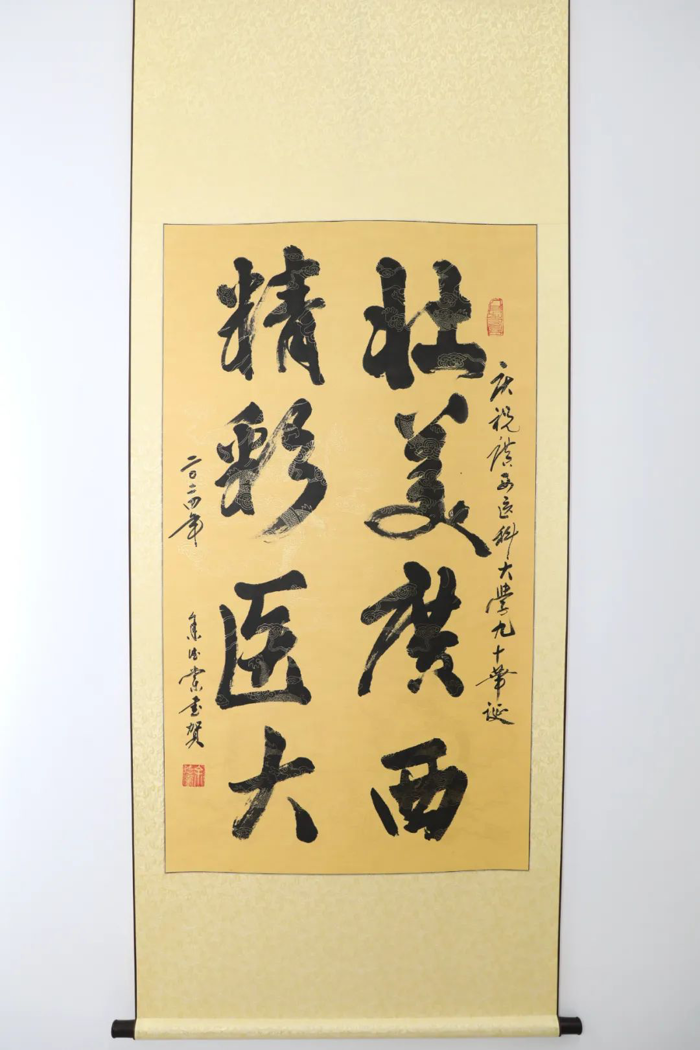 庆祝廣西医科大學九十華诞
壮美廣西
精彩医大
二〇二四年
書贺